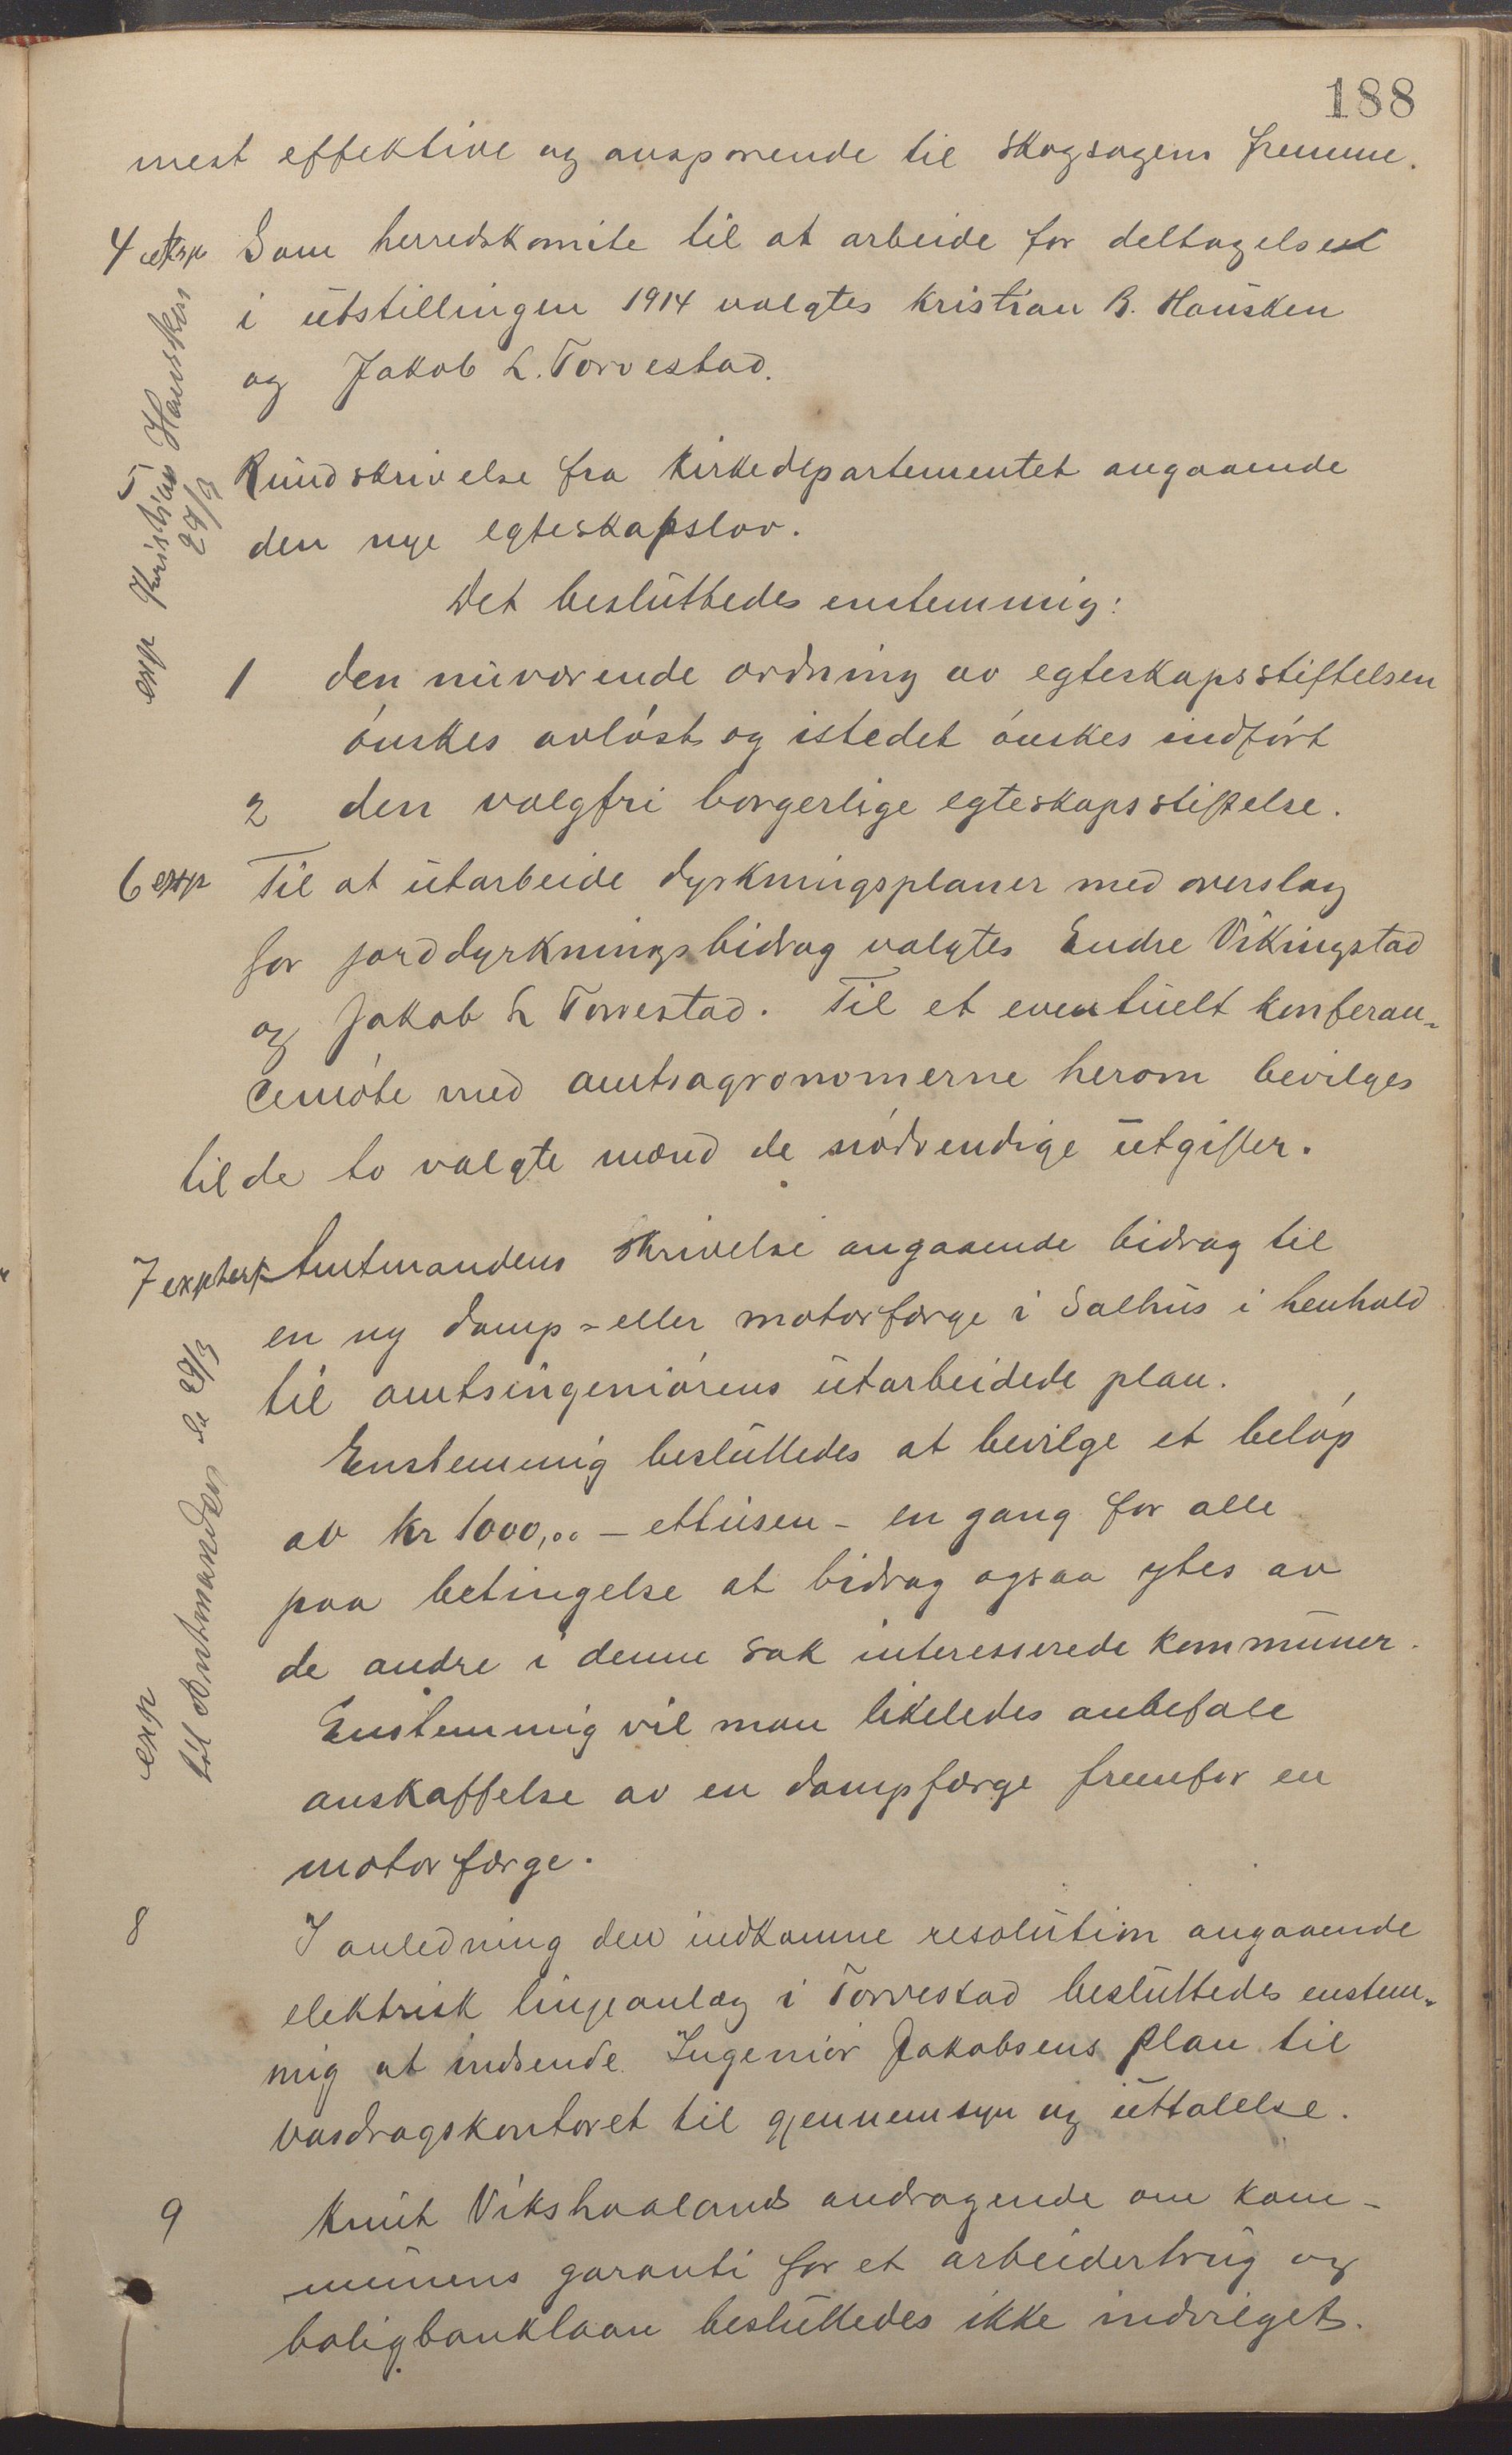 188
mest effektive og ansporende til skogsagens fremme.
4 exp Som herredskomite til at arbeide for deltagelsen
i utstillingen 1914 valgtes Kristian B. Hausken
og Jakob L. Torvestad.
exp Kristian Hausken
29/3
5 Rundskrivelse fra Kirkedepartementet angaaende
den nye egteskapslov.
Det besluttedes enstemmig:
1 den nuværende ordning av egteskapsstiftelsen
ønskes avløst og istedet ønskes indført
2 den valgfri borgerlige egteskapsstiftelse.
6 exp Til at utarbeide dyrkningsplaner med overslag
for jorddyrkningsbidrag valgtes Endre Vikingstad
og Jakob L Torvestad. Til et eventuelt konferan-
cemøte med amtsagronomerne herom bevilges
til de to valgte mænd de nødvendige utgifter.
7 exp Amtmandens skrivelse angaaende bidrag til
en ny damp- eller motorfærge i Salhus i henhold
til amtsingeniørens utarbeidede plan.
Enstemmig besluttedes at bevilge et beløp
av kr 1000,00 - ettusen - en gang for alle
paa betingelse at bidrag ogsaa ytes av
de andre i denne sak interesserede kommuner.
Enstemmig vil man likeledes anbefale
anskaffelse av en dampfærge fremfor en
motorfærge.
exp
til Amtmanden 29/3
8 I anledning den indkomne resolution angaaende
elektrisk linjeanlæg i Torvestad besluttedes enstem-
mig at indsende Ingeniør Jakobsens plan til
vasdragskontoret til gjennemsyn og uttalelse.
9 Knut Vikshaalands andragende om kom-
munens garanti for et arbeiderbrug og
boligbanklaan besluttedes ikke indvilget.